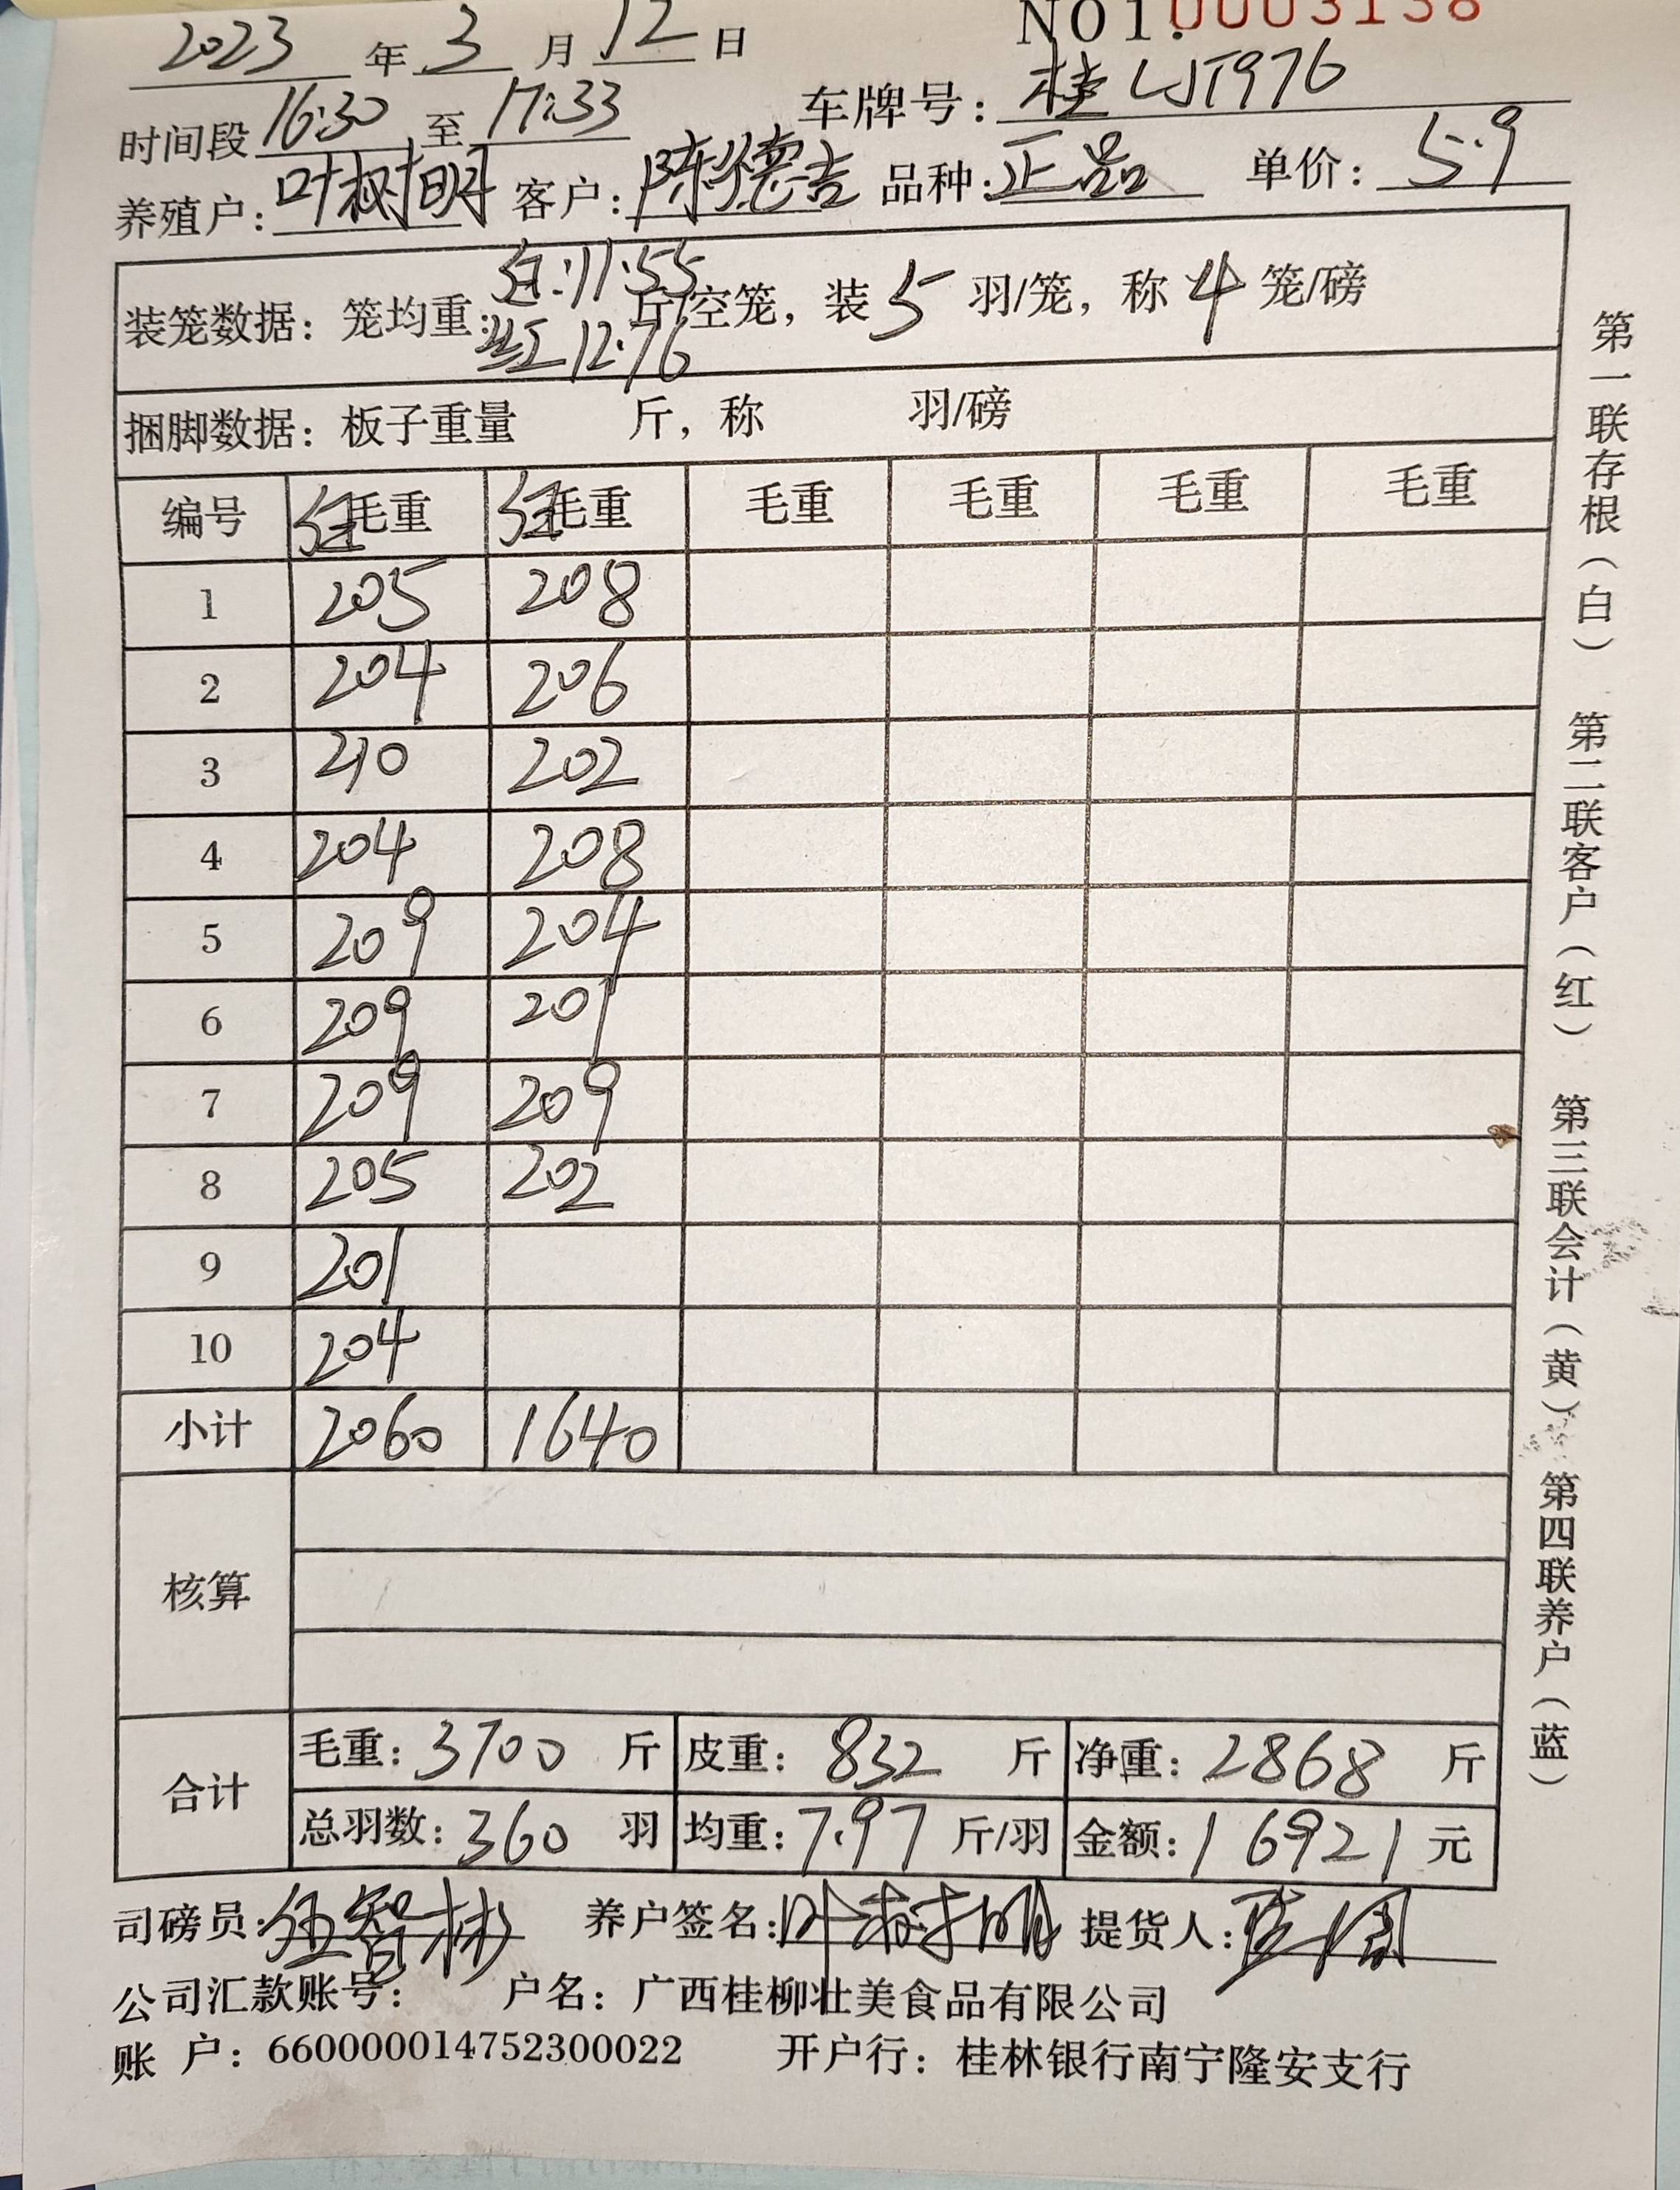 2023 年 3 月 12 日 NO1.0003138
时间段 16:30 至 17:33 车牌号: 桂LJT976
养殖户: 叶树明 客户: 陈德吉 品种: 正品 单价: 5.9
白:11.55
装笼数据: 笼均重: 斤/空笼, 装 5 羽/笼, 称 4 笼/磅
红12.76
捆脚数据: 板子重量 斤, 称 羽/磅
编号 红毛重 红毛重 毛重 毛重 毛重 毛重
1 205 208
2 204 206
3 210 202
4 204 208
5 209 204
6 209 201
7 209 209
8 205 202
9 201
10 204
小计 2060 1640
核算
合计 毛重: 3700 斤 皮重: 832 斤 净重: 2868 斤
总羽数: 360 羽 均重: 7.97 斤/羽 金额: 16921 元
司磅员: 伍智彬 养户签名: 叶树明 提货人:
公司汇款账号: 户名: 广西桂柳壮美食品有限公司
账 户: 660000014752300022 开户行: 桂林银行南宁隆安支行
第一联存根(白) 第二联客户(红) 第三联会计(黄) 第四联养户(蓝)